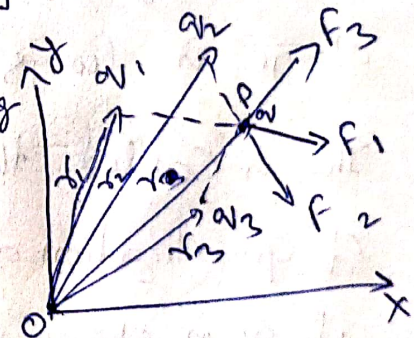 y
q1
q2
F3
P
q
F1
F2
r1
r2
r
q3
r3
O
X